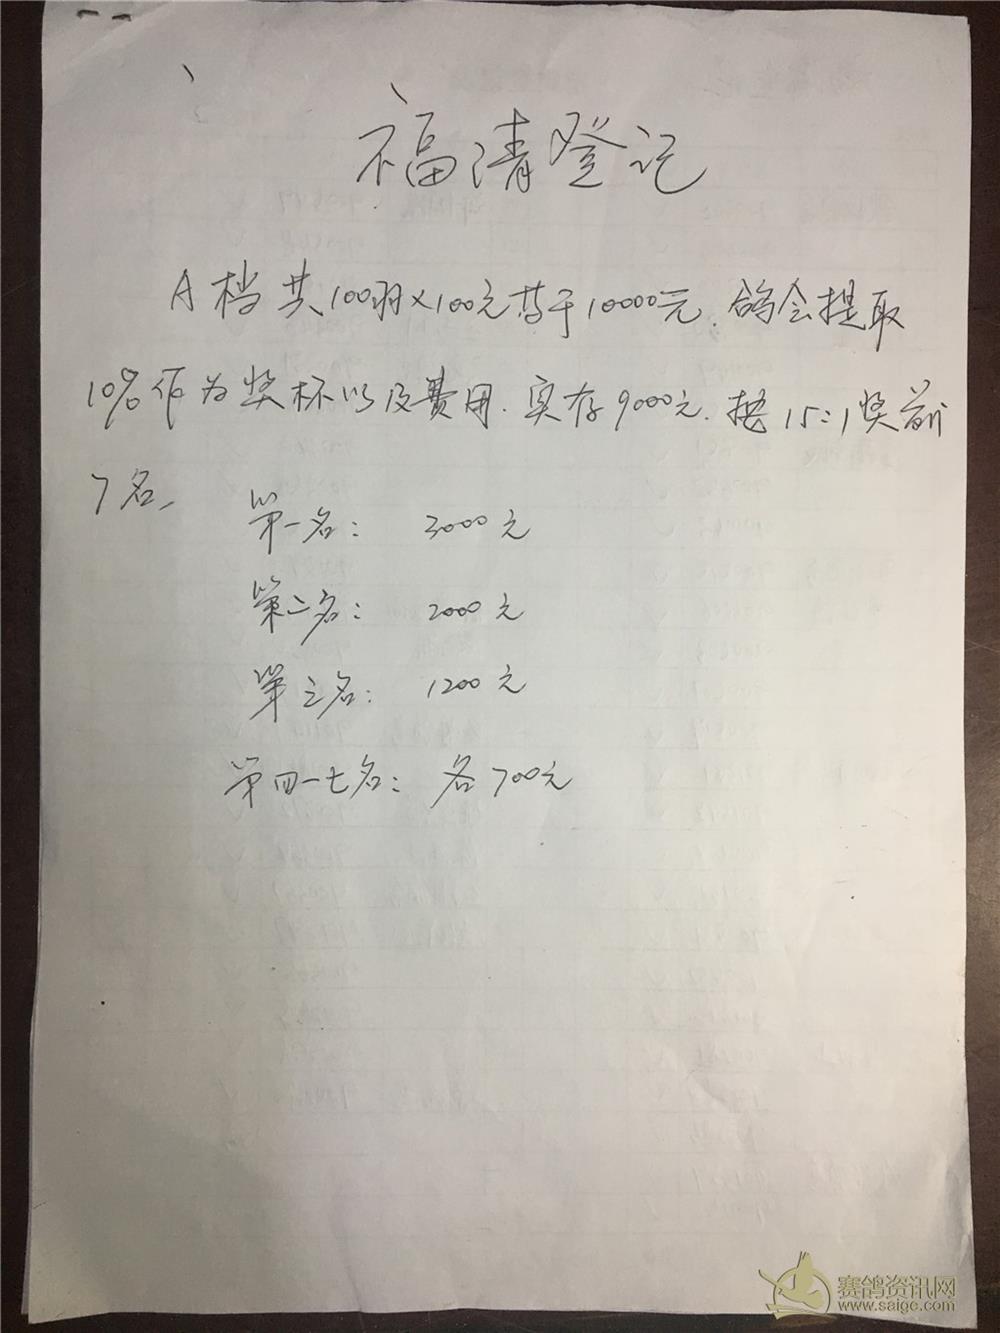 福清登记
A档共100羽×100元等于10000元.鸽会提取
10%作为奖杯以及费用.实存9000元.按15:1奖前
7名、
第一名: 3000元
第二名: 2000元
第三名: 1200元
第四一七名: 各700元
赛鸽资讯网
www.saige.com